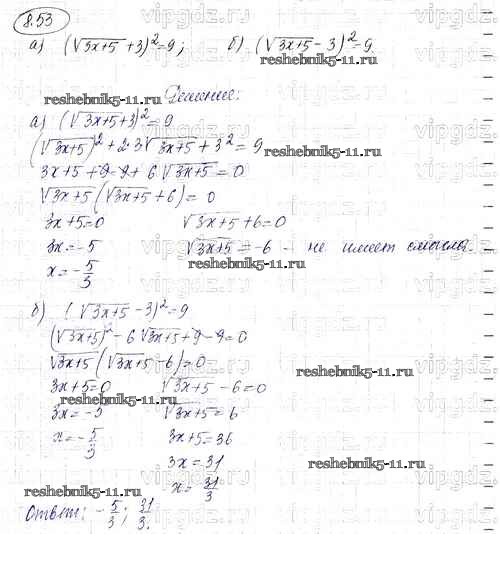 8.53
а) (√3x+5 + 3)² = 9; б) (√3x+5 - 3)² = 9
reshebnik5-11.ru
Решение:
reshebnik5-11.ru
а) (√3x+5 + 3)² = 9
(√3x+5)² + 2·3√3x+5 + 3² = 9
reshebnik5-11.ru
3x + 5 + 9 - 9 + 6√3x+5 = 0
√3x+5 (√3x+5 + 6) = 0
3x + 5 = 0 √3x+5 + 6 = 0
3x = -5 √3x+5 = -6 - не имеет смысла.
reshebnik5-11.ru
x = -5/3
б) (√3x+5 - 3)² = 9
(√3x+5)² - 6√3x+5 + 9 - 9 = 0
√3x+5 (√3x+5 - 6) = 0
reshebnik5-11.ru
3x + 5 = 0 √3x+5 - 6 = 0
reshebnik5-11.ru
3x = -5 √3x+5 = 6
x = -5/3 3x + 5 = 36
3x = 31
reshebnik5-11.ru
x = 31/3
reshebnik5-11.ru
Ответ: -5/3; 31/3.
vipgdz.com